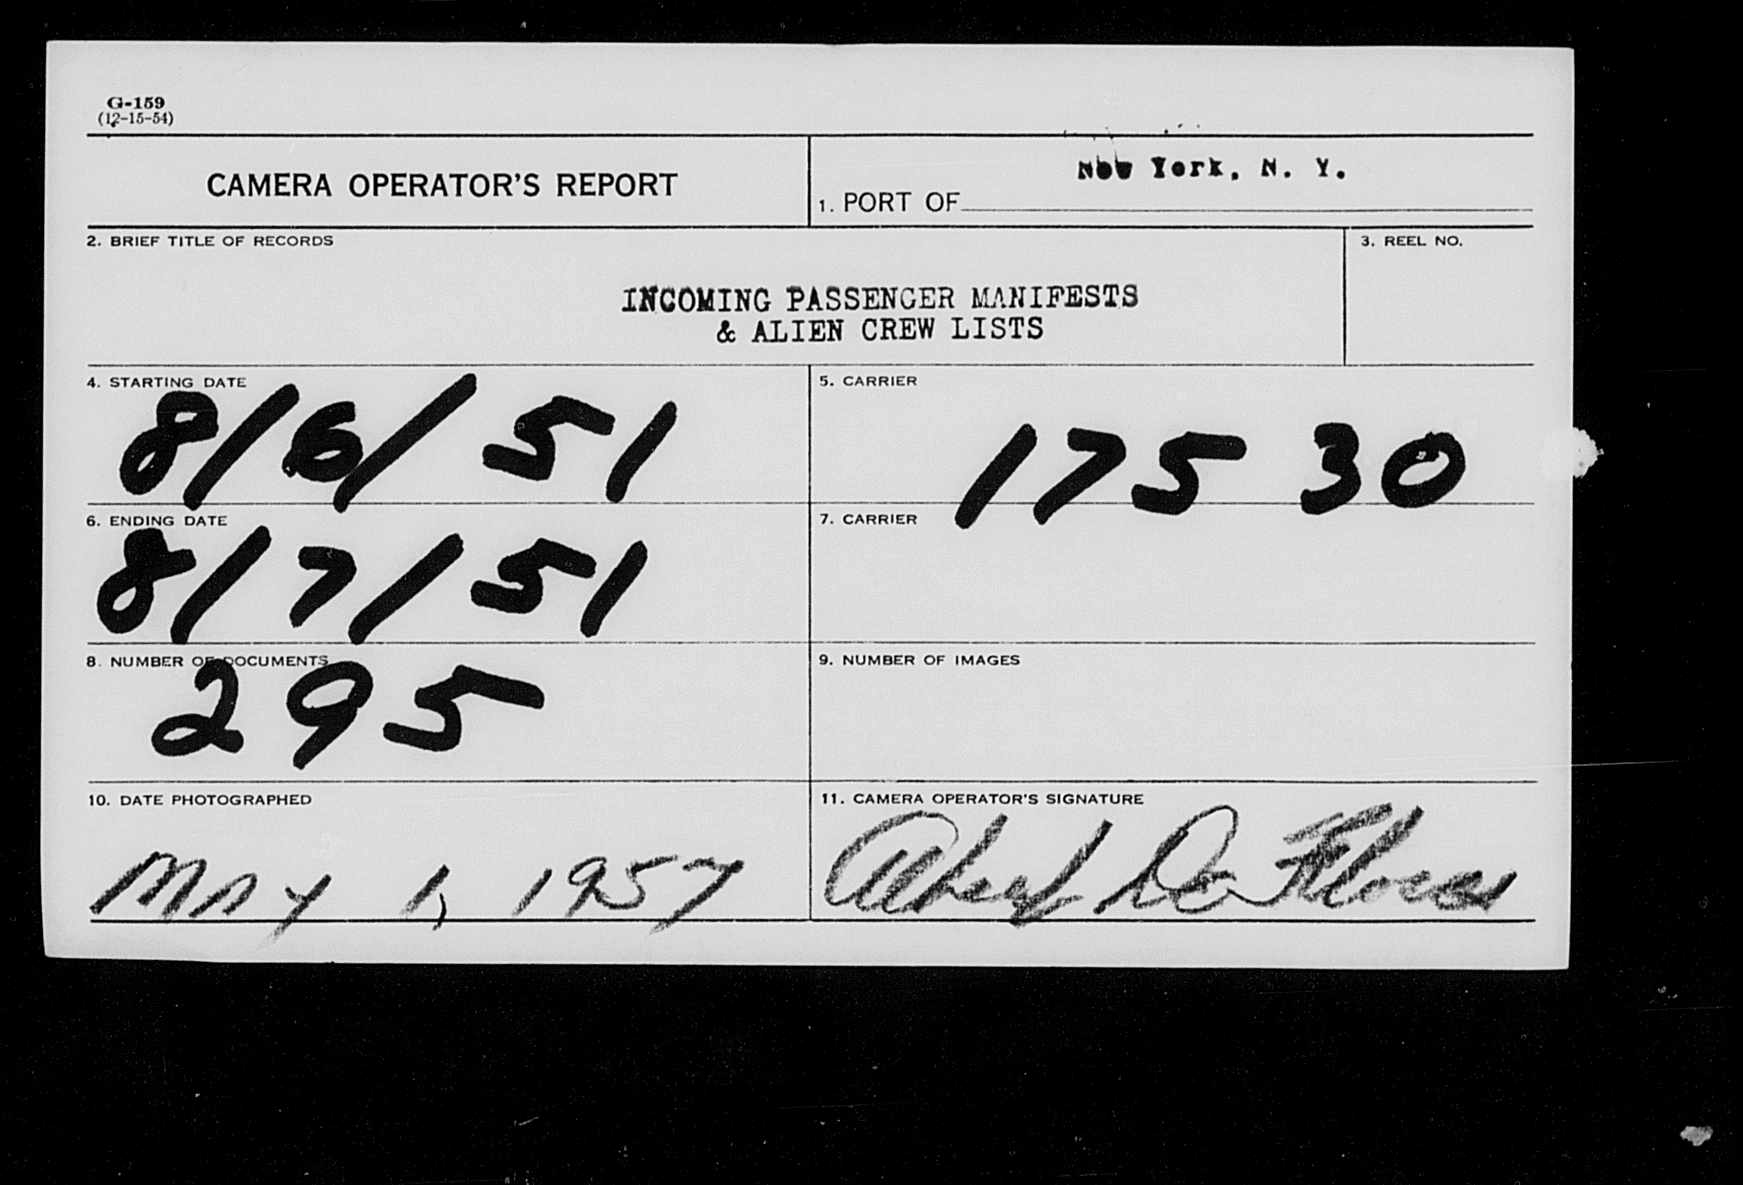 G-159
(12-15-54)
CAMERA OPERATOR'S REPORT
1. PORT OF New York, N. Y.
2. BRIEF TITLE OF RECORDS
INCOMING PASSENGER MANIFESTS
& ALIEN CREW LISTS
3. REEL NO.
4. STARTING DATE
8/6/51
5. CARRIER
175 30
6. ENDING DATE
8/7/51
7. CARRIER
8. NUMBER OF DOCUMENTS
295
9. NUMBER OF IMAGES
10. DATE PHOTOGRAPHED
MAY 1, 1957
11. CAMERA OPERATOR'S SIGNATURE
Albert De